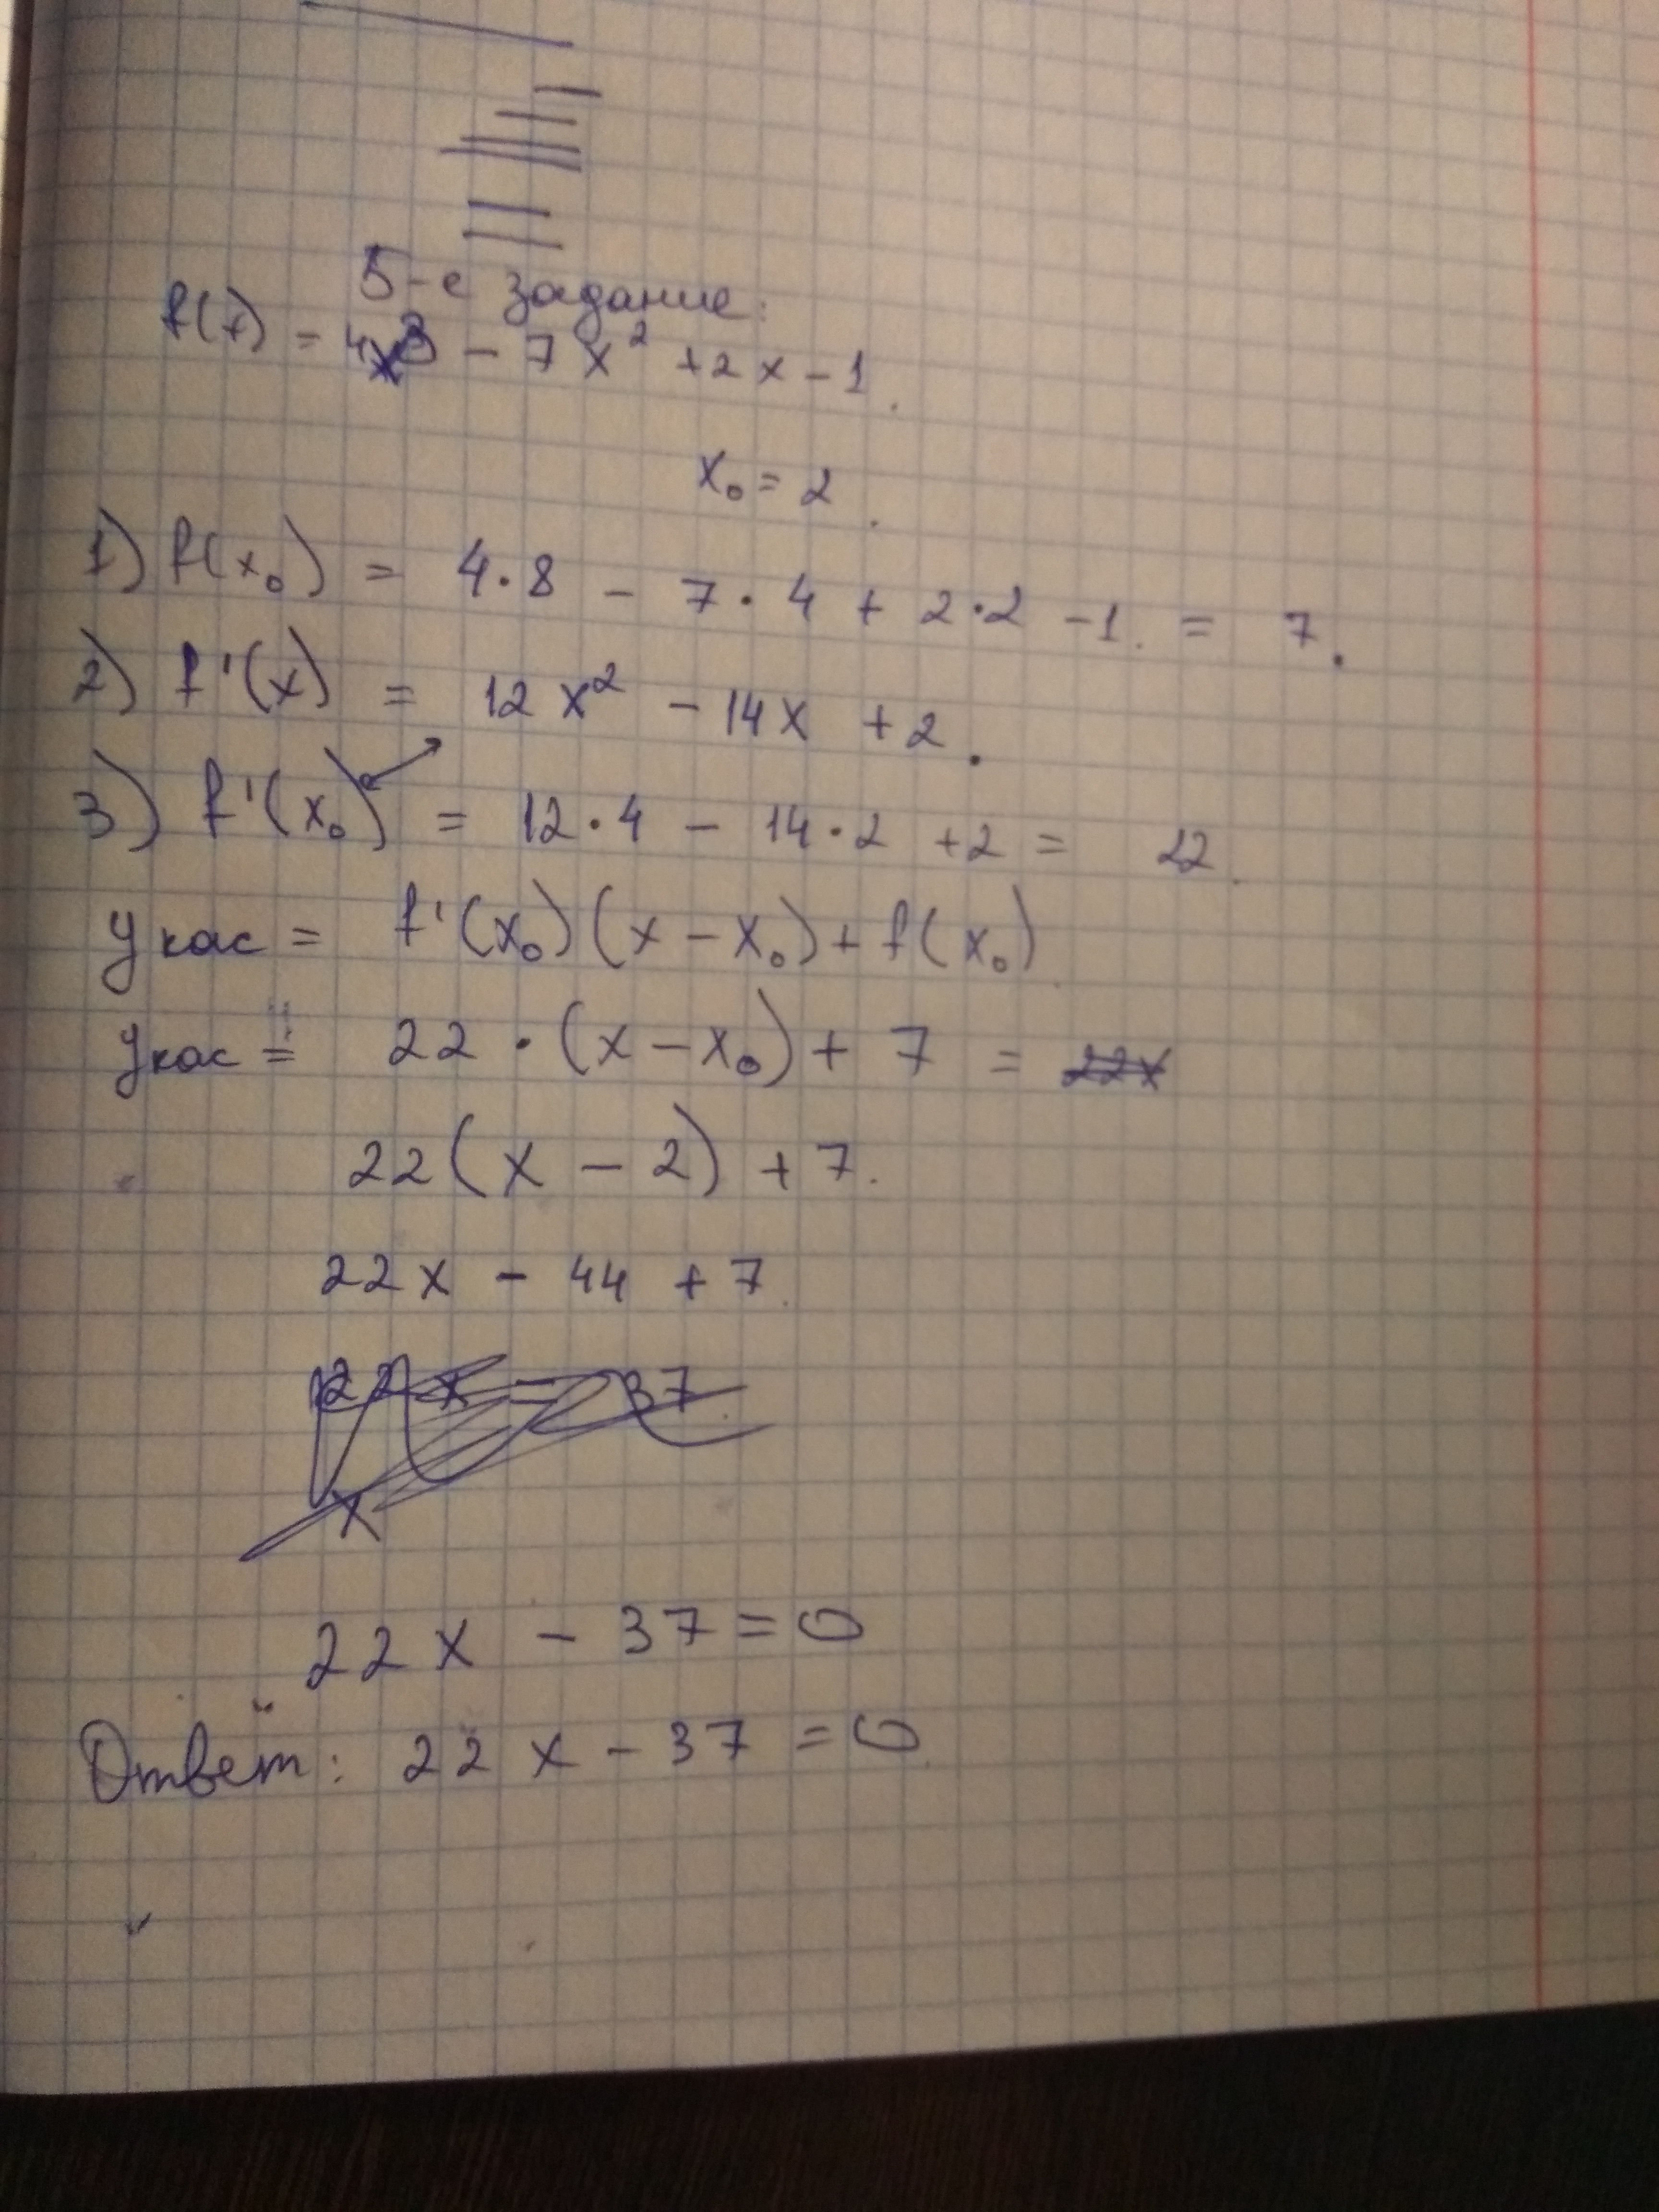 5-е задание:
f(x) = 4x3 - 7x² + 2x - 1.
x₀ = 2.
1) f(x₀) = 4·8 - 7·4 + 2·2 - 1. = 7.
2) f'(x) = 12x² - 14x + 2.
3) f'(x₀) = 12·4 - 14·2 + 2 = 22.
yкас = f'(x₀)(x - x₀) + f(x₀)
yкас = 22·(x - x₀) + 7 = 22x
22(x - 2) + 7.
22x - 44 + 7.
22x = 37.
x
22x - 37 = 0
Ответ: 22x - 37 = 0.